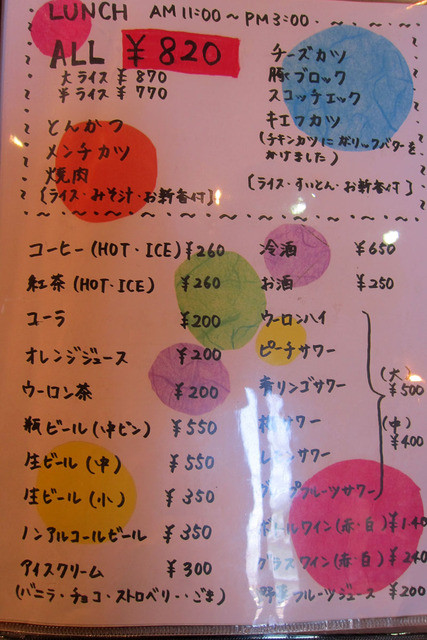 LUNCH AM 11:00～PM 3:00
ALL ¥820
大ライス ¥870
半ライス ¥770
とんかつ
メンチカツ
焼肉
(ライス・みそ汁・お新香付)
チーズカツ
豚ブロック
スコッチエック
キエフカツ
(チキンカツにガリックバターを
かけました)
(ライス・すいとん・お新香付)
コーヒー(HOT・ICE) ¥260
紅茶(HOT・ICE) ¥260
コーラ ¥200
オレンジジュース ¥200
ウーロン茶 ¥200
瓶ビール(中ビン) ¥550
生ビール(中) ¥550
生ビール(小) ¥350
ノンアルコールビール ¥350
アイスクリーム ¥300
(バニラ・チョコ・ストロベリー・ごま)
冷酒 ¥650
お酒 ¥250
ウーロンハイ
ピーチサワー
青リンゴサワー
サワー
レモンサワー
グレープフルーツサワー
(大)
¥500
(中)
¥400
ボトルワイン(赤・白) ¥1.40
グラスワイン(赤・白) ¥240
野菜フルーツジュース ¥200